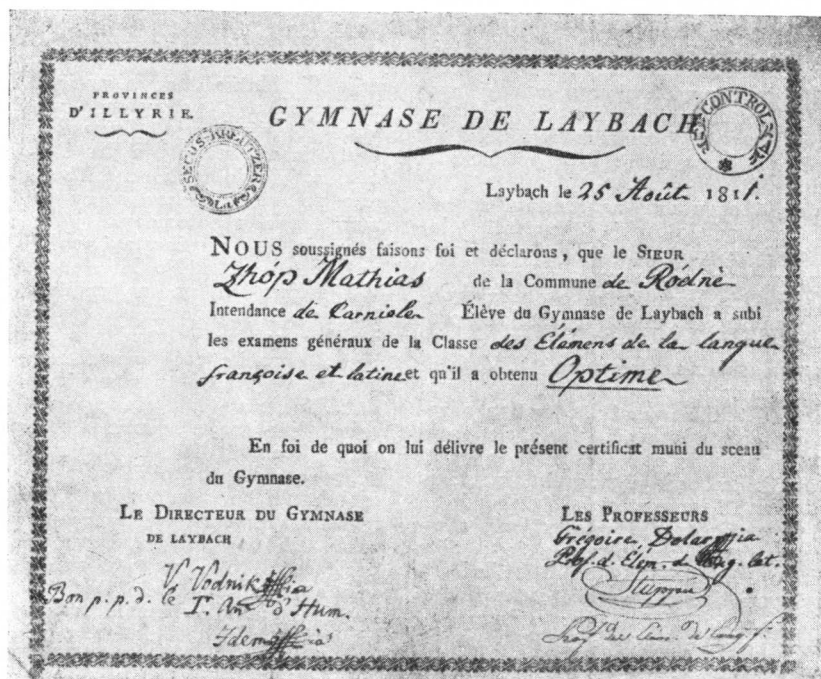 PROVINCES
D'ILLYRIE.
GYMNASE DE LAYBACH
SECHS KREUTZER
CONTROL
Laybach le 25 Août 1811.
NOUS soussignés faisons foi et déclarons, que le SIEUR
Zhóp Mathias de la Commune de Ródnè
Intendance de Carniole Élève du Gymnase de Laybach a subi
les examens généraux de la Classe des Élémens de la langue
françoise et latine et qu'il a obtenu Optime
En foi de quoi on lui délivre le présent certificat muni du sceau
du Gymnase.
LE DIRECTEUR DU GYMNASE
DE LAYBACH
V. Vodnik
Bon p. p. d. le I.e An. d'Hum.
Idem
LES PROFESSEURS
Grégoire
Prof. d. Élém. d. lang. lat.